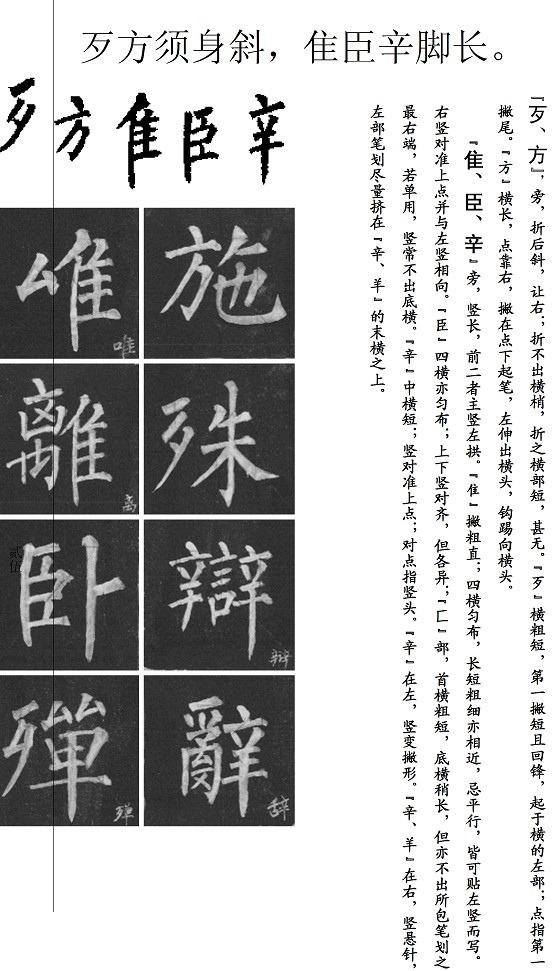 歹方须身斜，隹臣辛脚长。
『歹、方』旁，折后斜，让右；折不出横梢，折之横部短，甚无。『歹』横粗短，第一撇短且回锋，起于横的左部；点指第一
撇尾。『方』横长，点靠右，撇在点下起笔，左伸出横头，钩踢向横头。
『隹、臣、辛』旁，竖长，前二者主竖左拱。『隹』撇粗直；四横匀布，长短粗细亦相近，忌平行，皆可贴左竖而写。
右竖对准上点并与左竖相向。『臣』四横亦匀布；上下竖对齐，但各异；『匚』部，首横粗短，底横稍长，但亦不出所包笔划之
最右端，若单用，竖常不出底横。『辛』中横短；竖对准上点；对点指竖头。『辛』在左，竖变撇形。『辛、羊』在右，竖悬针，
左部笔划尽量挤在『辛、羊』的末横之上。
歹方隹臣辛
施
唯
唯
殊
離
离
辯
辩
臥
辭
辞
殫
殚
贰伍